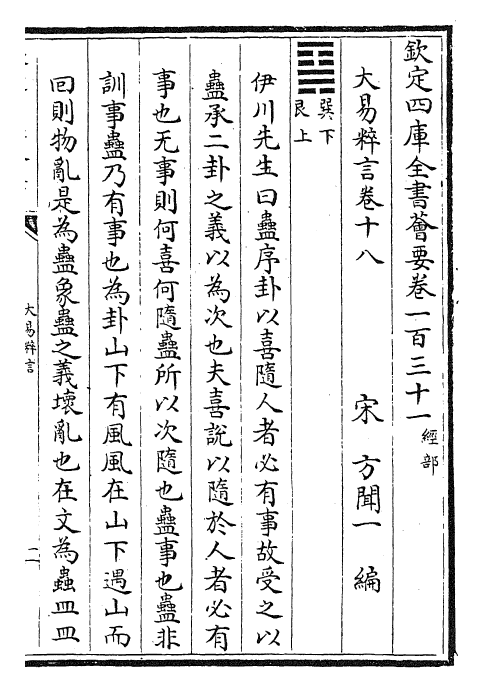 欽定四庫全書薈要卷一百三十一 經部
大易粹言卷十八 宋 方聞一 編
巽下
艮上
伊川先生曰蠱序卦以喜隨人者必有事故受之以
蠱承二卦之義以為次也夫喜說以隨於人者必有
事也无事則何喜何隨蠱所以次隨也蠱事也蠱非
訓事蠱乃有事也為卦山下有風風在山下遇山而
回則物亂是為蠱象蠱之義壞亂也在文為蟲皿皿
大易粹言